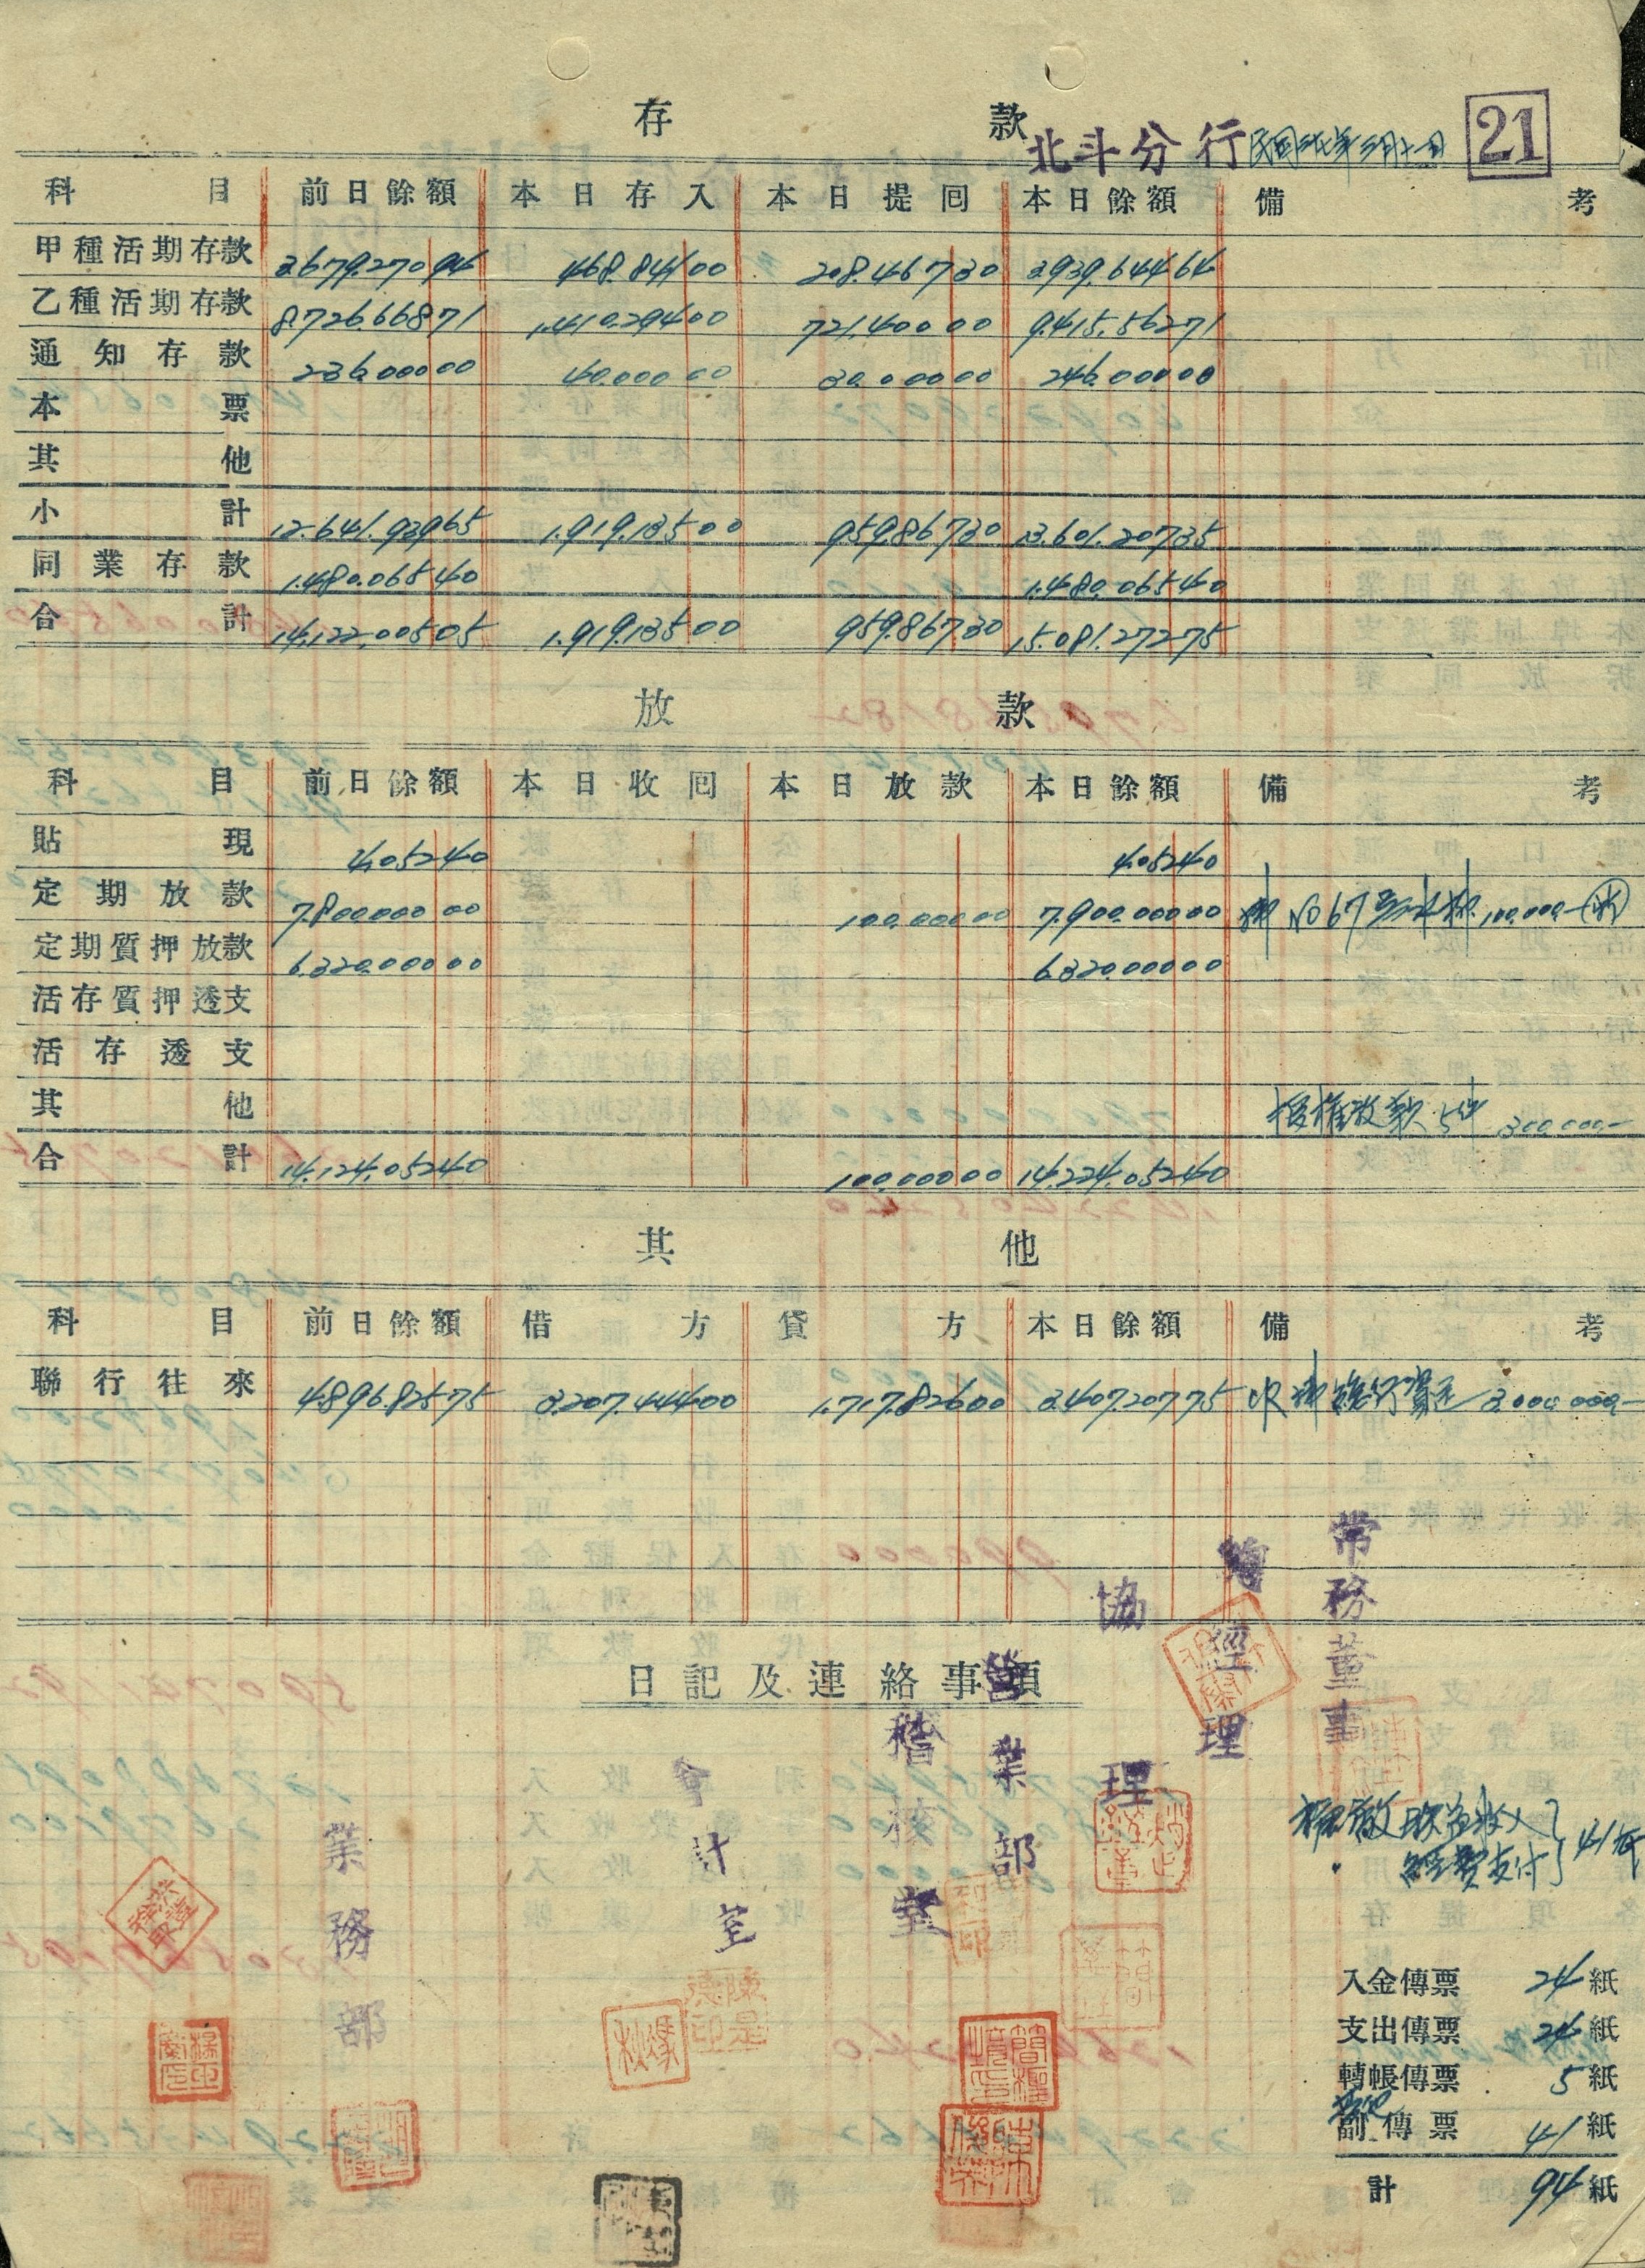 存 款 北斗分行 21
科目 前日餘額 本日存入 本日提囘 本日餘額 備考
甲種活期存款 3,679,270 94 468,841 00 208,467 30 3,939,644 64
乙種活期存款 8,726,668 71 1,410,294 00 721,400 00 9,415,562 71
通知存款 236,000 00 40,000 00 30,000 00 246,000 00
本票
其他
小計 12,641,939 65 1,919,135 00 959,867 30 13,601,207 35
同業存款 1,480,065 40 1,480,065 40
合計 14,122,005 05 1,919,135 00 959,867 30 15,081,272 75
放 款
科目 前日餘額 本日收囘 本日放款 本日餘額 備考
貼現 4,052 40 4,052 40
定期放款 7,800,000 00 100,000 00 7,900,000 00 No 67 100,000.-
定期質押放款 6,320,000 00 6,320,000 00
活存質押透支
活存透支
其他 授權放款 5件 300,000.-
合計 14,124,052 40 100,000 00 14,224,052 40
其 他
科目 前日餘額 借方 貸方 本日餘額 備考
聯行往來 4,896,825 75 3,207,444 00 1,717,826 00 3,407,207 75 3,000,000.-
日記及連絡事項
常務董事
總經理
協理
營業部
稽核室
會計室
業務部
收入
經費支付 41
入金傳票 24 紙
支出傳票 24 紙
轉帳傳票 5 紙
副傳票 41 紙
計 94 紙